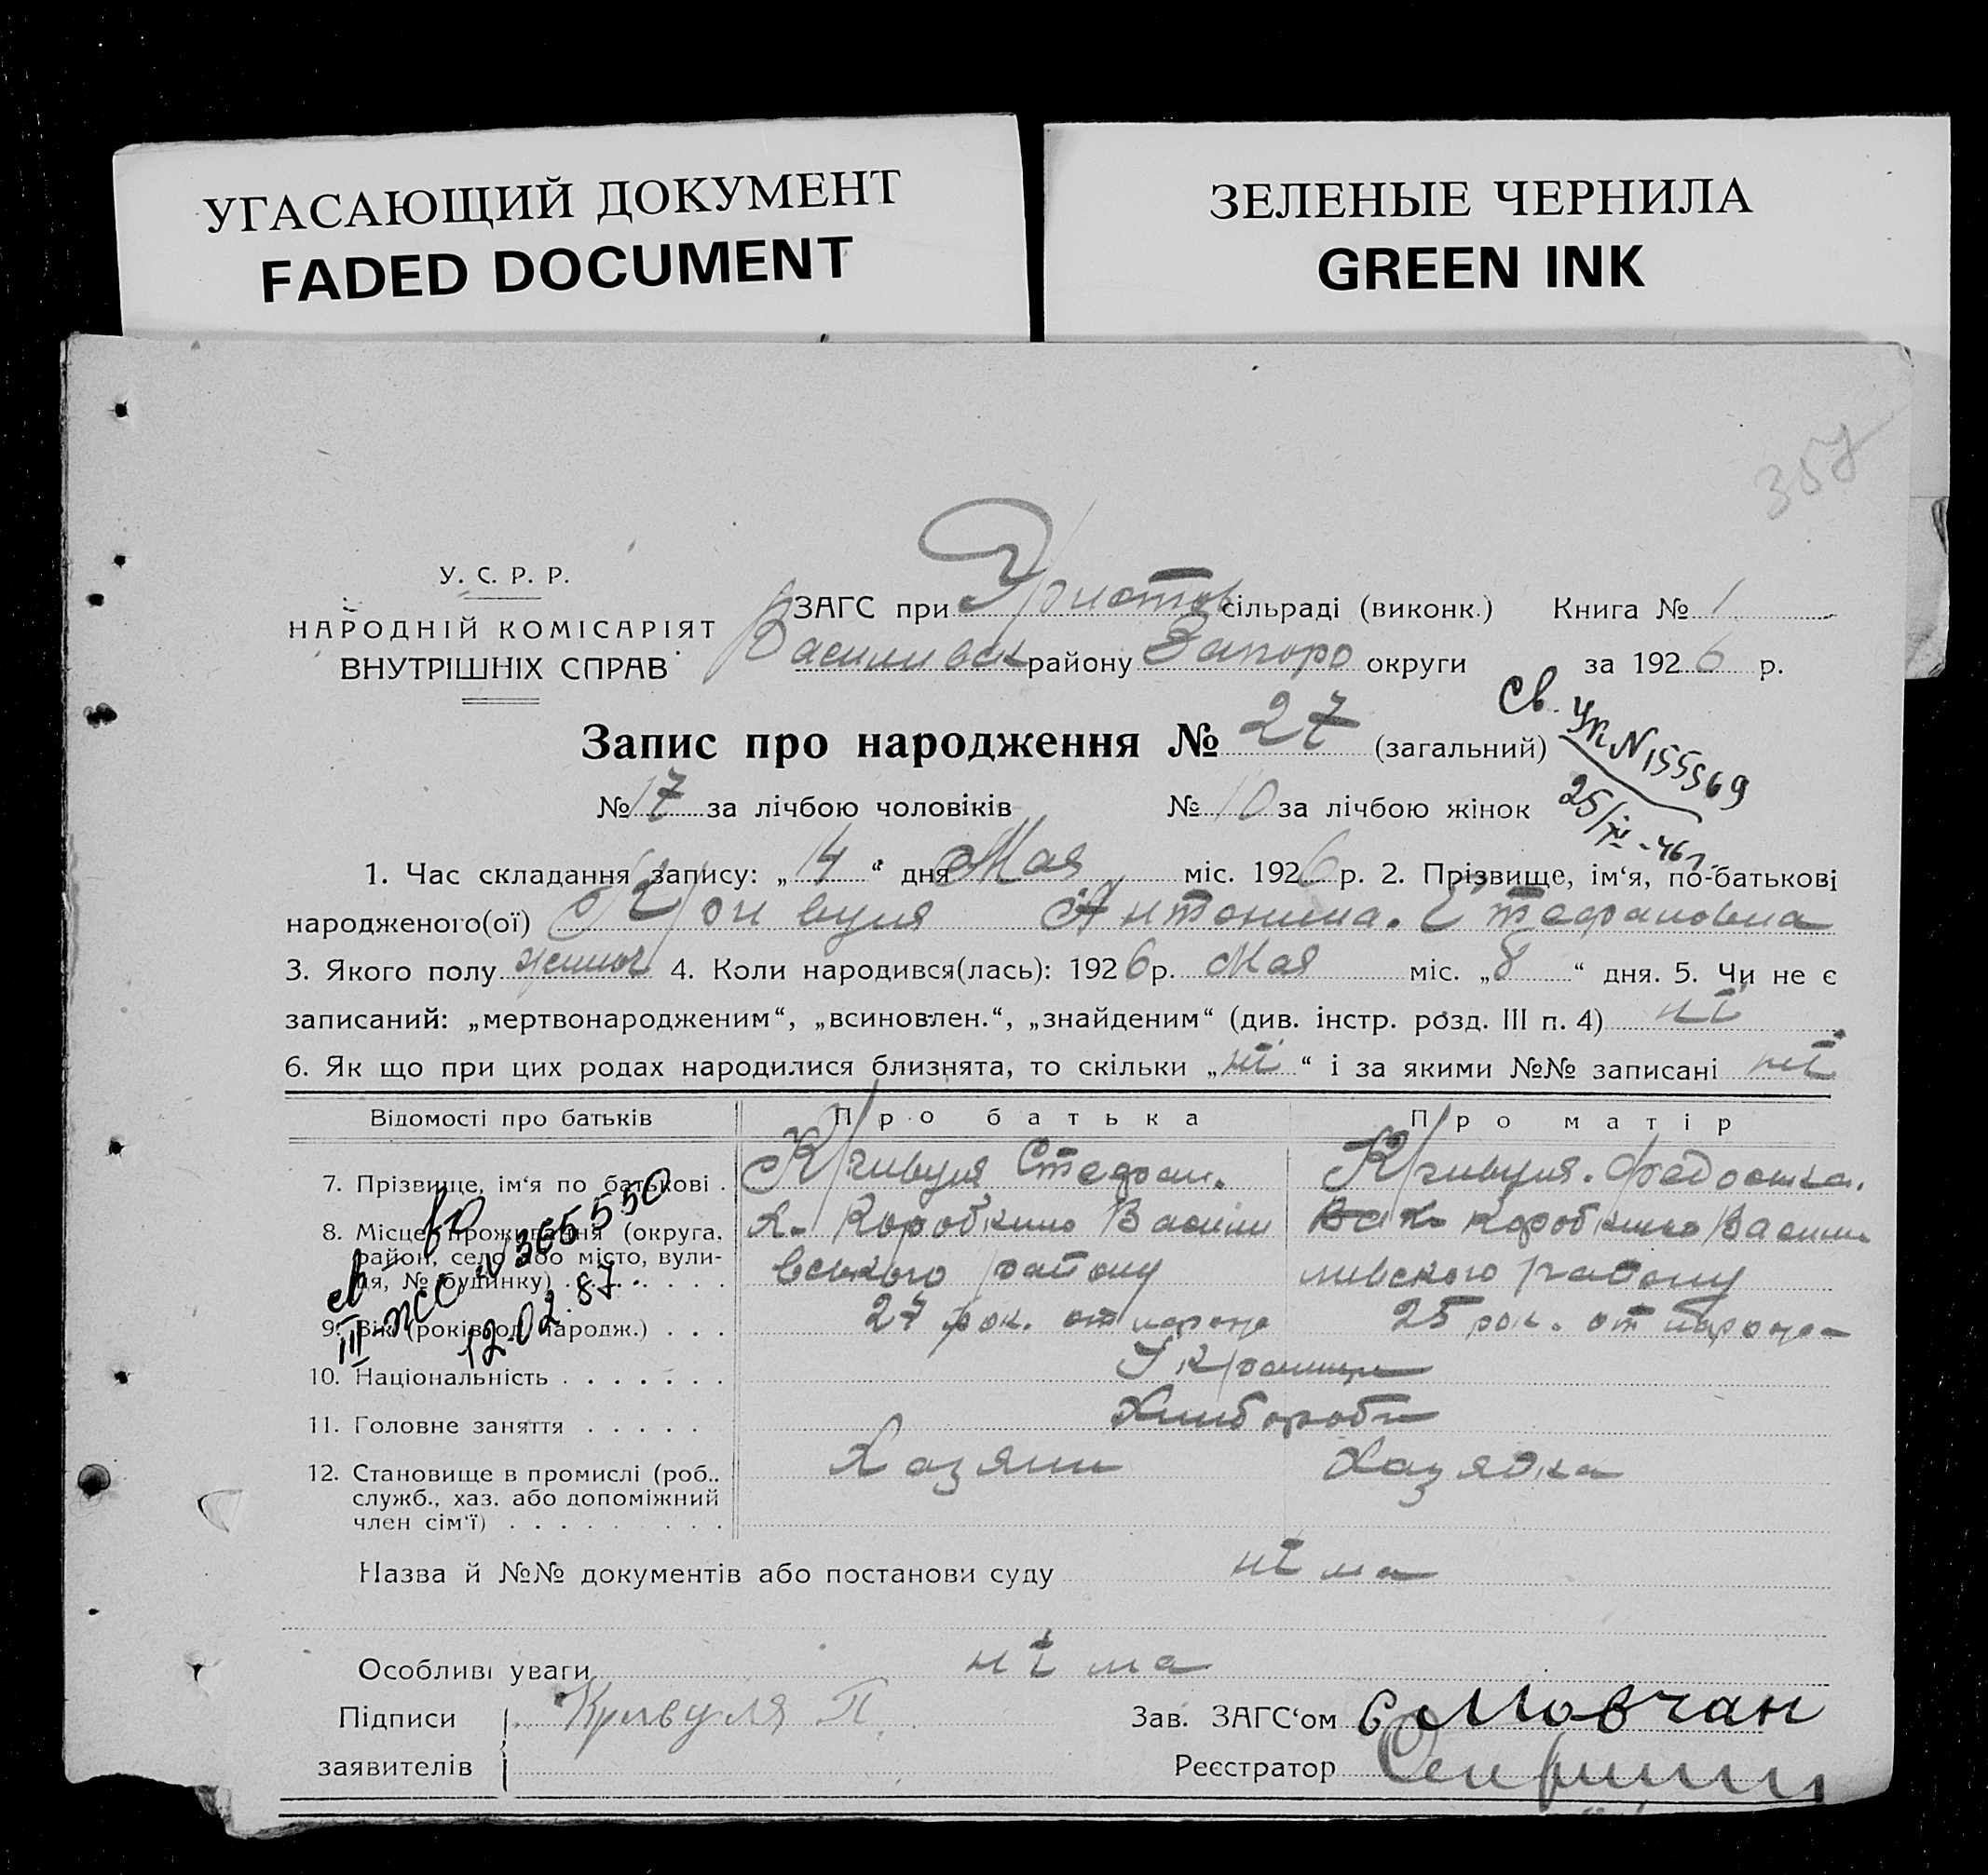 УГАСАЮЩИЙ ДОКУМЕНТ
FADED DOCUMENT
ЗЕЛЕНЫЕ ЧЕРНИЛА
GREEN INK
357
У. С. Р. Р.
НАРОДНІЙ КОМІСАРІЯТ
ВНУТРІШНІХ СПРАВ
ЗАГС при сільраді (виконк.) Книга № 1
Василивск району Запоро округи за 1926 р.
Запис про народження № 27 (загальний)
Св. УК N 155569
25/IV - 46 г.
№ 17 за лічбою чоловіків № 10 за лічбою жінок
1. Час складання запису: „14“ дня Мая міс. 1926 р. 2. Прізвище, ім‘я, по-батькові
народженого(ої) Кривуля Антонина. Стефановна
3. Якого полу жиноч 4. Коли народився(лась): 1926 р. Мая міс. „8“ дня. 5. Чи не є
записаний: „мертвонародженим“, „всиновлен.“, „знайденим“ (див. інстр. розд. III п. 4) ні
6. Як що при цих родах народилися близнята, то скільки „ні“ і за якими №№ записані ні
Відомості про батьків Про батька Про матір
7. Прізвище, ім‘я по батькові . Кривуля Стефан. Кривуля. Федоська.
8. Місце проживання (округа, х. Коробкино Васили Коробкино Васили
район, село або місто, вули-
ця, № будинку) . . . . . . . вського району ливского району
9. Вік (років од народж.) . . . 27 рок. от народ 25 рок. от народж
св N 365550
III-ЖС 12.02.87
10. Національність . . . . . . . Україн
11. Головне заняття . . . . . Хлибороби
12. Становище в промислі (роб., Хазяин Хазяйка
служб., хаз. або допоміжний
член сім‘ї) . . . . . . . . .
Назва й №№ документів або постанови суду ні ма
Особливі уваги ні ма
Підписи Кривуля П. Зав. ЗАГС‘ом Мовчан
заявителів Реєстратор